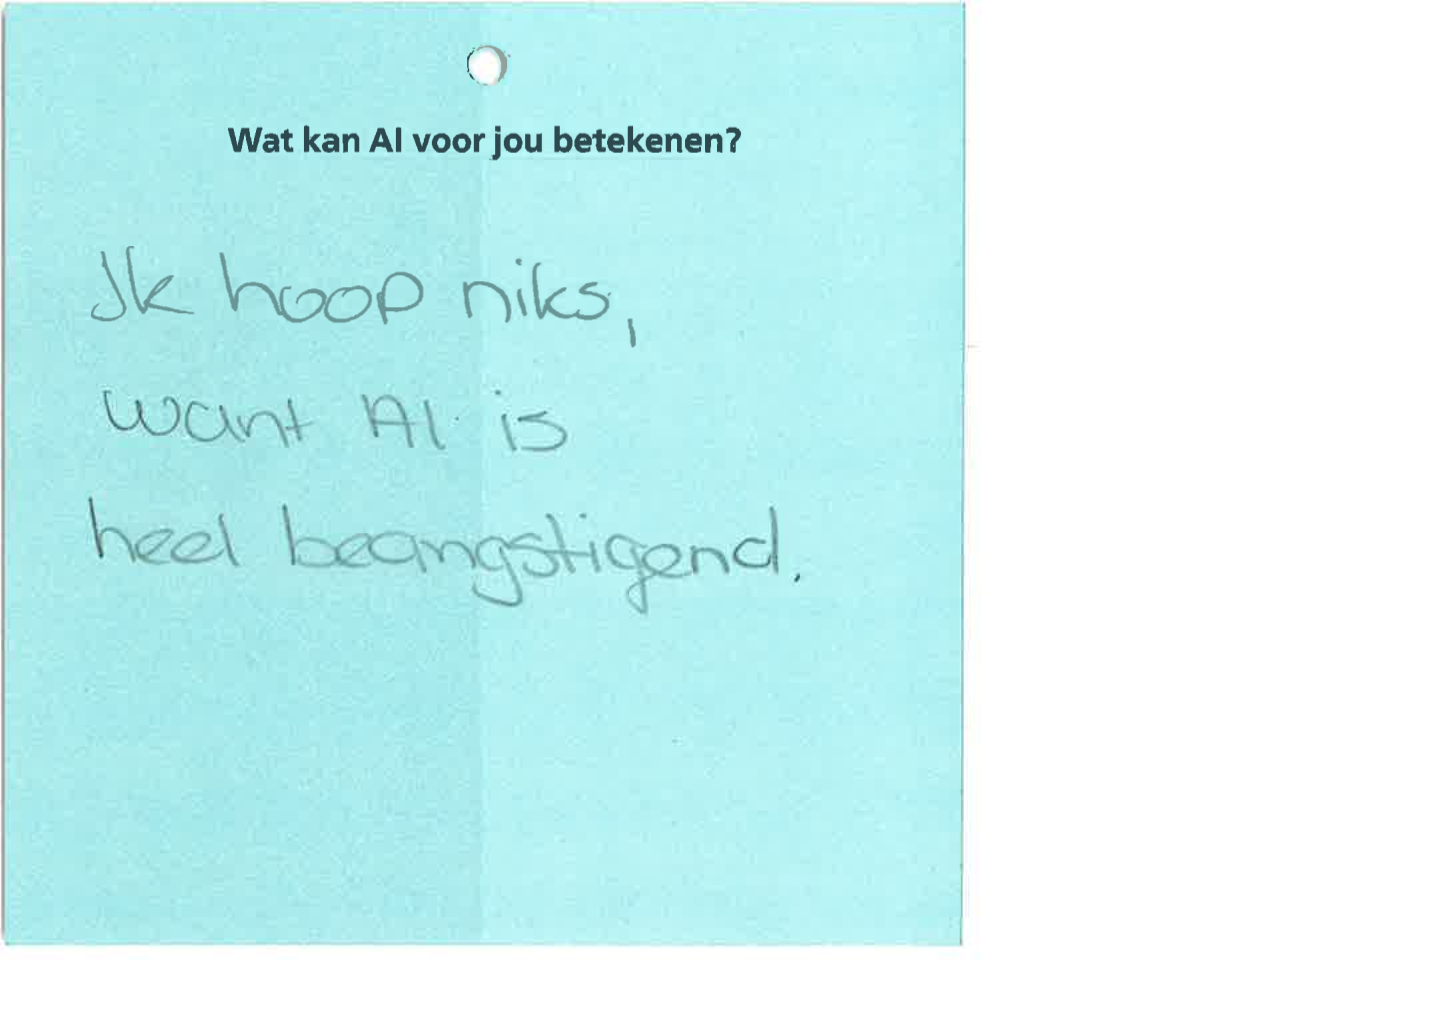 Wat kan AI voor jou betekenen?
Ik hoop niks,
want AI is
heel beangstigend.